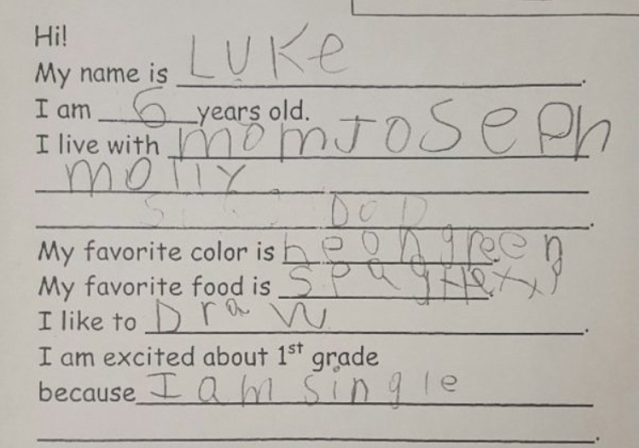 Hi!
My name is LUKe.
I am 6 years old.
I live with mom JOSePh
molly
DOD.
My favorite color is neon green
My favorite food is
I like to Draw.
I am excited about 1st grade
because I am single
.